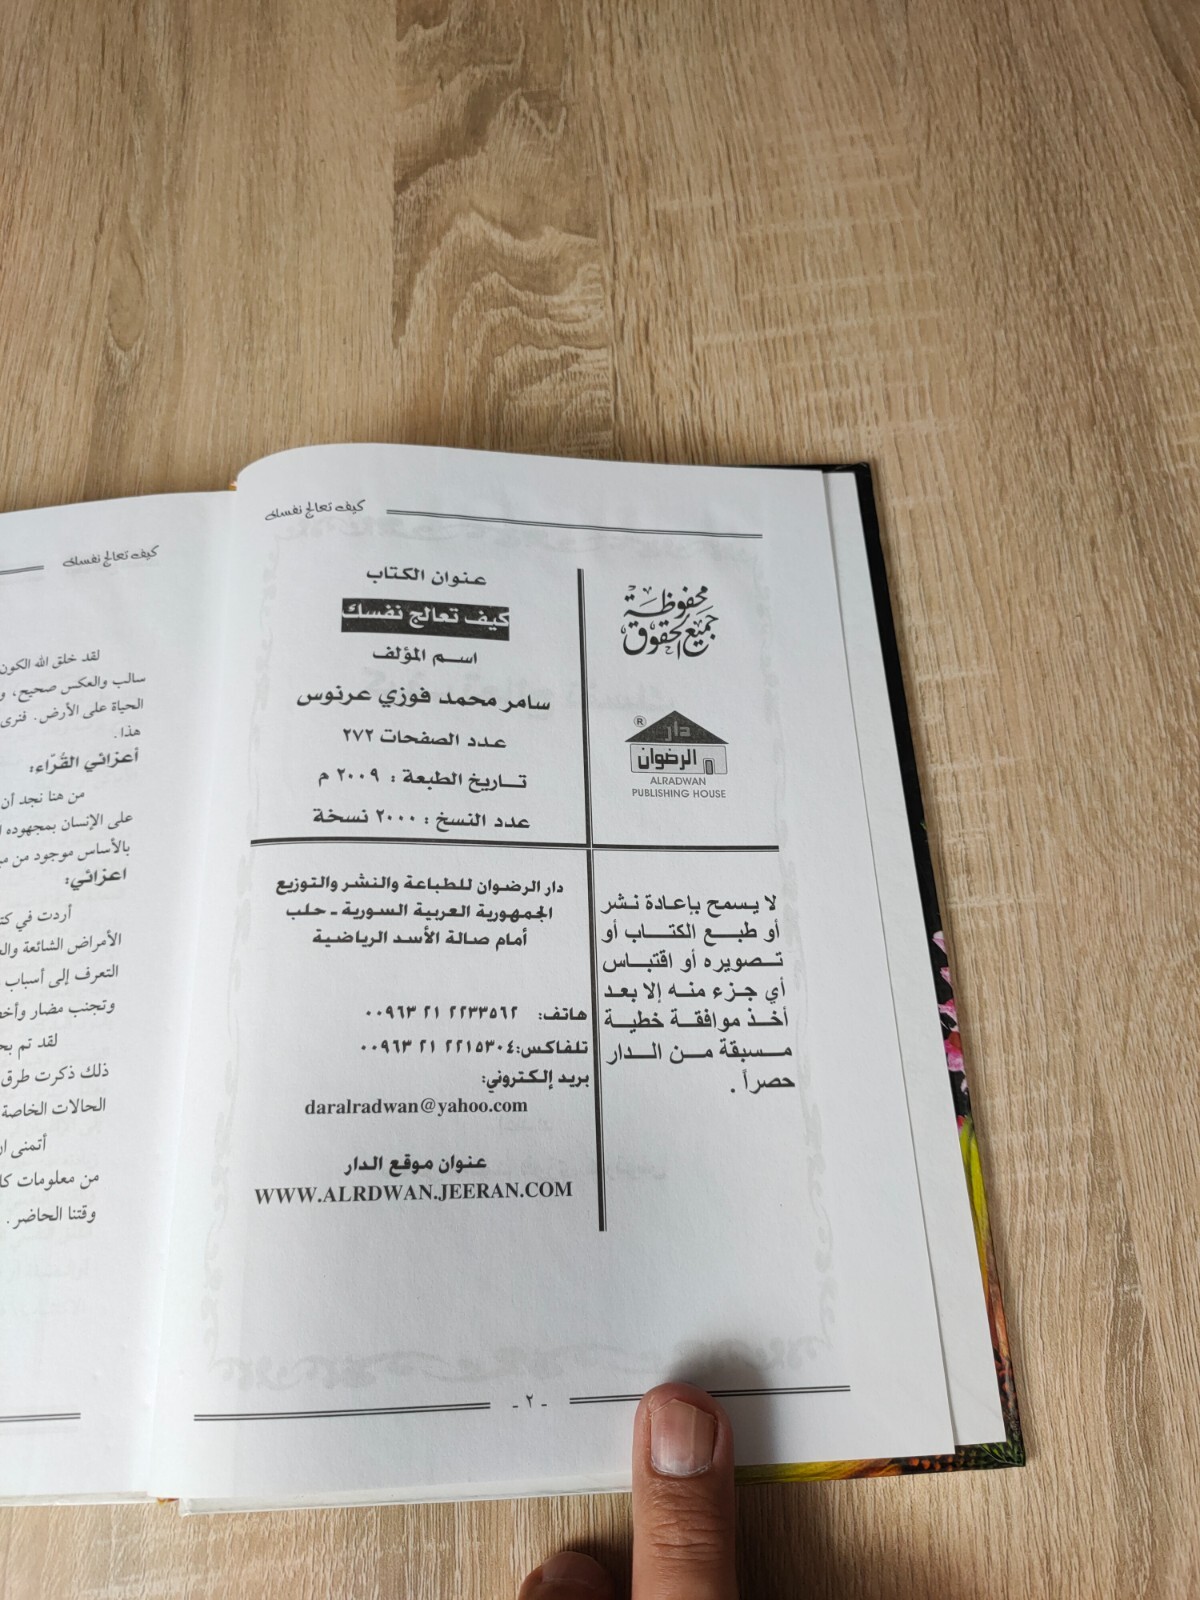 كيف تعالج نفسك
محفوظة
جميع الحقوق
دار
®
الرضوان
ALRADWAN
PUBLISHING HOUSE
لا يسمح بإعادة نشر
أو طبع الكتاب أو
تصويره أو اقتباس
أي جزء منه إلا بعد
أخذ موافقة خطية
مسبقة من الدار
حصراً .
عنوان الكتاب
كيف تعالج نفسك
اسم المؤلف
سامر محمد فوزي عرنوس
عدد الصفحات ٢٧٢
تاريخ الطبعة : ٢٠٠٩ م
عدد النسخ : ٢٠٠٠ نسخة
دار الرضوان للطباعة والنشر والتوزيع
الجمهورية العربية السورية - حلب
أمام صالة الأسد الرياضية
هاتف: ٠٠٩٦٣ ٢١ ٢٢٣٣٥٦٢
تلفاكس: ٠٠٩٦٣ ٢١ ٢٢١٥٣٠٤
بريد إلكتروني:
daralradwan@yahoo.com
عنوان موقع الدار
WWW.ALRDWAN.JEERAN.COM
- ٢ -
كيف تعالج نفسك
لقد خلق الله الكون
سالب والعكس صحيح، و
الحياة على الأرض. فنرى
هذا.
أعزائي القُرّاء:
من هنا نجد أن
على الإنسان بمجهوده
بالأساس موجود من
اعزائي:
أردت في
الأمراض الشائعة
التعرف إلى أسباب
وتجنب مضار
لقد تم
ذلك ذكرت طرق
الحالات الخاصة
أتمنى
من معلومات
وقتنا الحاضر.